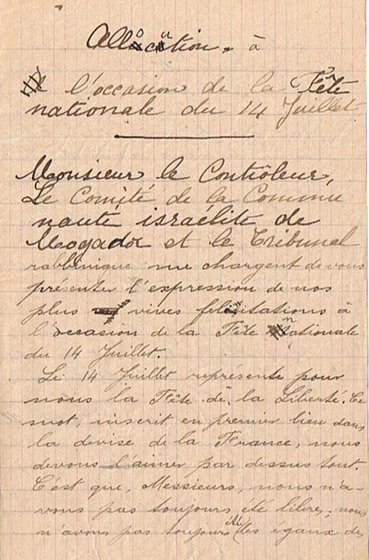 Allocution, à
l'occasion de la Fête
nationale du 14 Juillet
Monsieur le Contrôleur,
Le Comité de la Commu
nauté israélite de
Mogador et le Tribunal
rabbinique me chargent de vous
présenter l'expression de nos
plus vives félicitations à
l'occasion de la Fête Nationale
du 14 Juillet.
Le 14 Juillet représente pour
nous la Fête de la Liberté. Ce
mot, inscrit en premier lieu dans
la devise de la France, nous
devons l'aimer par dessus tout.
C'est que, Messieurs, nous n'a-
vons pas toujours été libre, nous
n'avons pas toujours été les égaux de